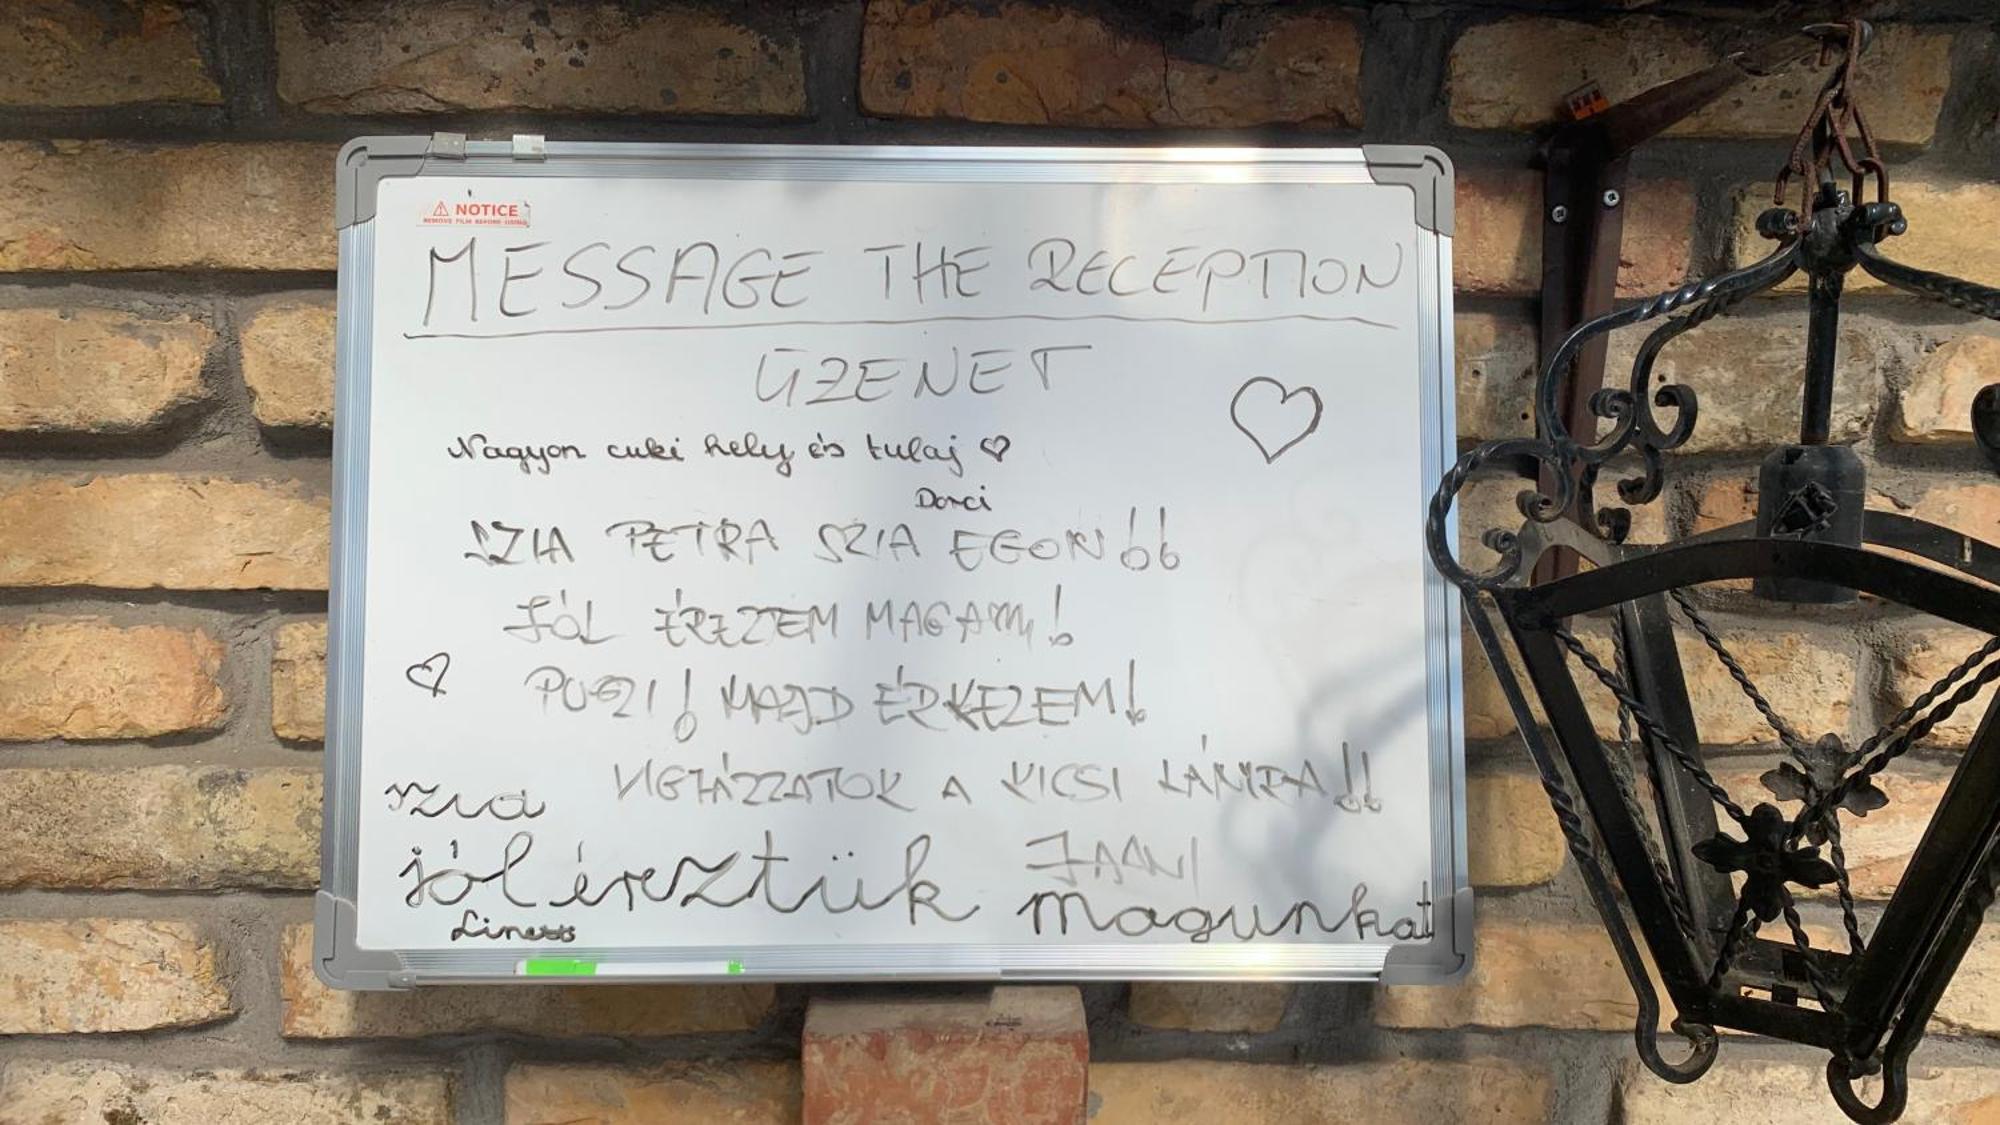 NOTICE
REMOVE FILM BEFORE USING
MESSAGE THE RECEPTION
ÜZENET
Nagyon cuki hely és tulaj ♡
Dorci
SZIA PETRA SZIA EGON!!
JÓL ÉREZTEM MAGAM!
PUSZI! MAJD ÉRKEZEM!
VIGYÁZZATOK A KICSI LÁNYRA!!
JAANI
szia
jól éreztük magunkat